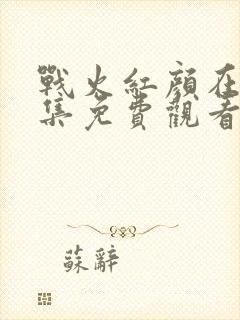 戰火紅顏在
集免費觀看
蘇辭